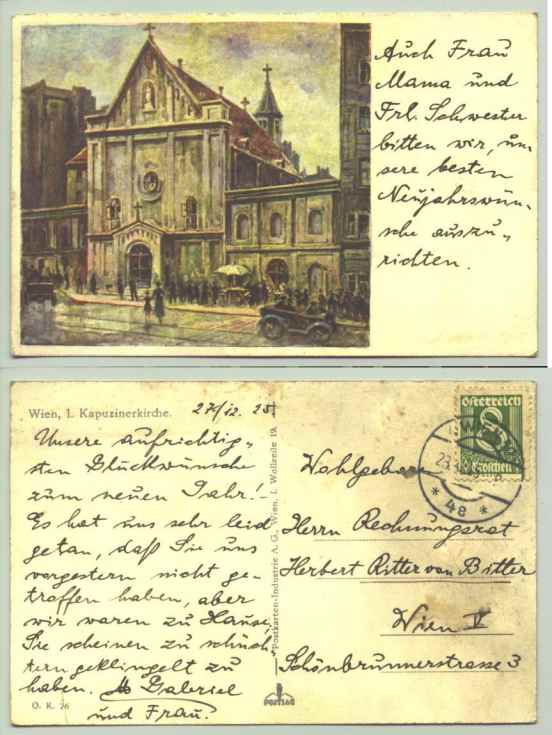 Auch Frau
Mama und
Frl. Schwester
bitten wir, un-
sere besten
Neujahrswün-
sche auszu-
richten.
Wien, I. Kapuzinerkirche.
27/12. 25.
Unsere aufrichtig-
sten Glückwünsche
zum neuen Jahr!-
Es hat uns sehr leid
getan, daß Sie uns
vorgestern nicht ge-
troffen haben, aber
wir waren zu Hause,
Sie scheinen zu schüch-
tern geklingelt zu
haben. Gabriel
und Frau.
O. K. 26
"Postkarten-Industrie A. G., Wien, I. Wollzeile 19.
POSTIAG
Österreich
8
Groschen
* 4a *
Wohlgeboren
Herrn Rechnungsrat
Herbert Ritter von Bitter
Wien V
Schönbrunnerstrasse 3